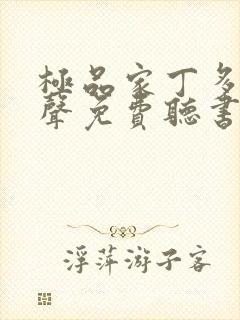 極品家丁多
聲免費聽書
浮萍游子客